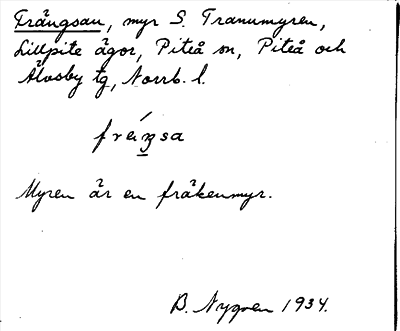 Frängsau, myr S. Tranumyren,
Lillpite ägor, Piteå sn, Piteå och
Älvsby tg, Norrb. l.
Myren är en fräkenmyr.
B. Nygren 1934.